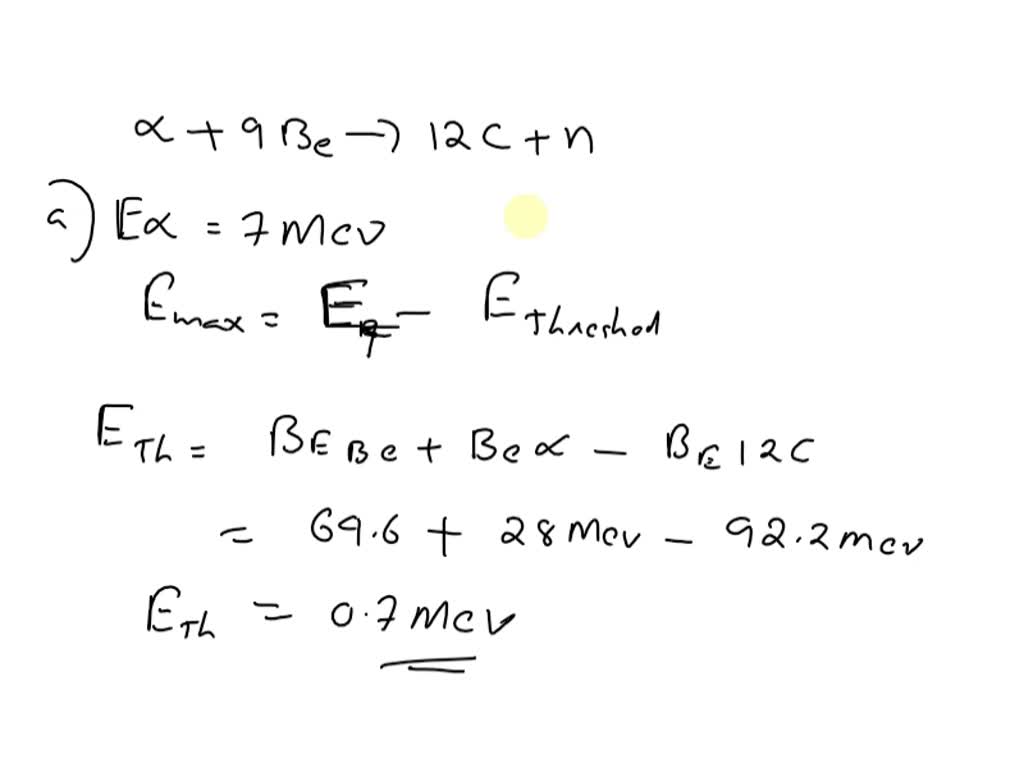 α + 9 Be → 12 C + n
a) Eα = 7 Mev
Emax = E - EThreshod
ETh = BE Be + Be α - BE 12 C
= 69.6 + 28 Mev - 92.2 mev
ETh = 0.7 Mev